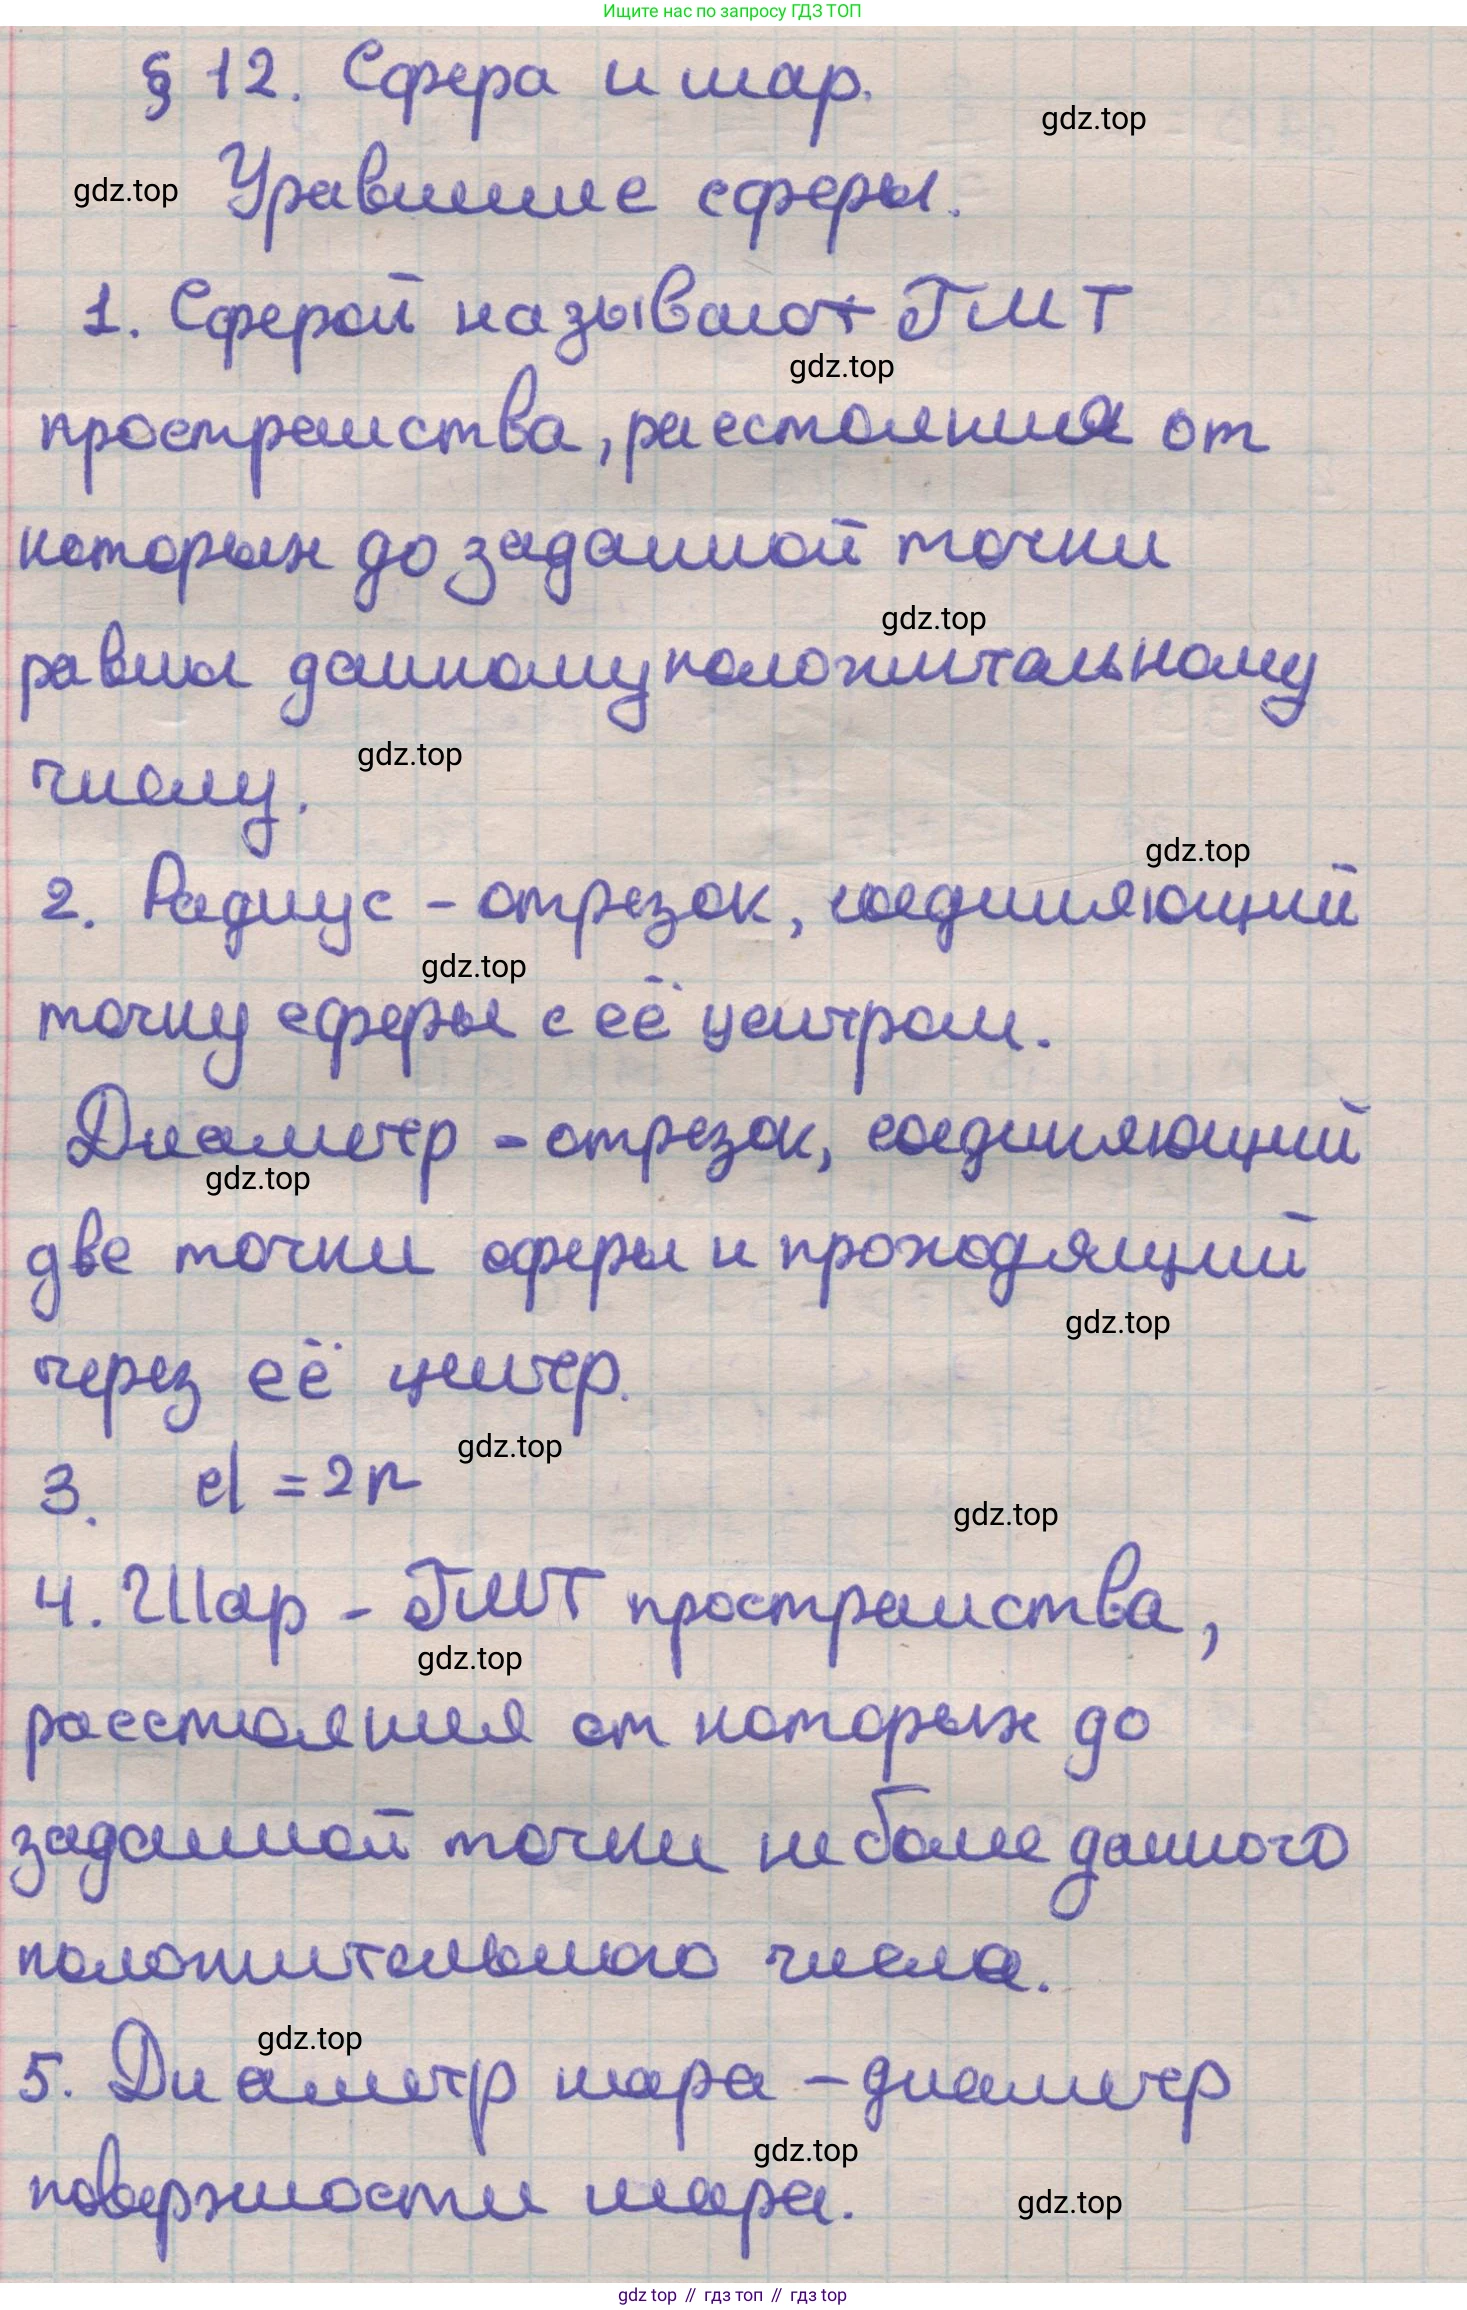 Ищите нас по запросу ГДЗ ТОП
§ 12. Сфера и шар.
gdz.top
gdz.top Уравнение сферы.
1. Сферой называют ГМТ
gdz.top
пространства, расстояния от
которых до заданной точки
gdz.top
равны данному положительному
gdz.top
числу.
gdz.top
2. Радиус - отрезок, соединяющий
gdz.top
точку сферы с её центром.
Диаметр - отрезок, соединяющий
gdz.top
две точки сферы и проходящий
gdz.top
через её центр.
gdz.top
3. d = 2r
gdz.top
4. Шар - ГМТ пространства,
gdz.top
расстояния от которых до
заданной точки не более данного
положительного числа.
gdz.top
5. Диаметр шара - диаметр
gdz.top
поверхности шара.
gdz.top
gdz top // гдз топ // гдз top